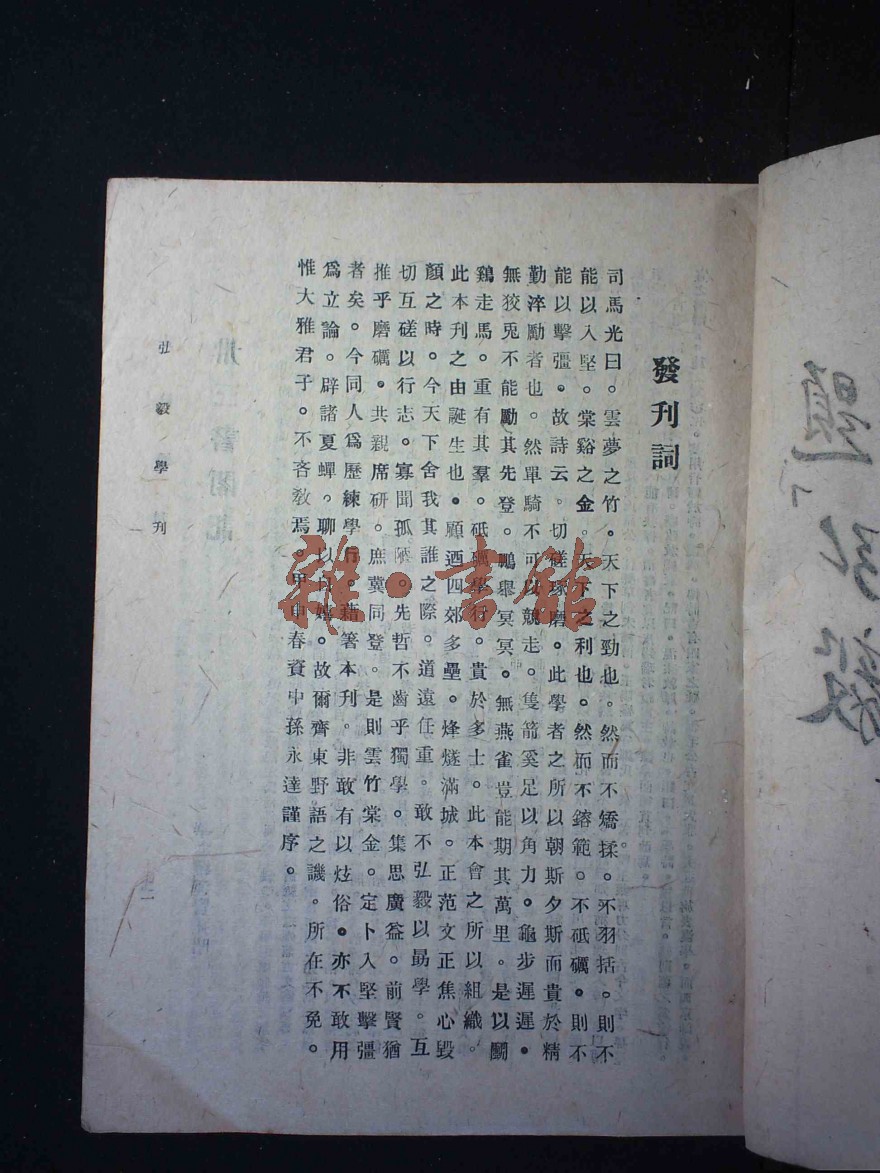 發刊詞
司馬光曰。雲夢之竹。天下之勁也。然而不矯揉。不羽括。則不
能以入堅。棠谿之金。天下之利也。然而不鎔範。不砥礪。則不
能以擊彊。故詩云。切磋琢磨。此學者之所以朝斯夕斯而貴於精
勤淬勵者也。然單騎不可以競走。隻箭奚足以角力。龜步遲遲。
無狡兎不能勵其先登。鵬舉冥冥。無燕雀豈能期其萬里。是以鬭
鷄走馬。重有其羣。砥礪學行。貴於多士。此本會之所以組織。
此本刊之由誕生也。顧迺四郊多壘。烽燧滿城。正范文正焦心毀
顏之時。今天下舍我其誰之際。道遠任重。敢不弘毅以勗學。互
切互磋以行志。寡聞孤陋。先哲不齒乎獨學。集思廣益。前賢猶
推乎磨礪。共親席研。庶冀同登。是則雲竹棠金。定卜入堅擊彊
者矣。今同人爲歷練學行。藉箸本刊。非敢有以炫俗。亦不敢用
爲立論。辟諸夏蟬。聊以自嬉。故爾齊東野語之譏。所在不免。
惟大雅君子。不吝敎焉。甲申春資中孫永達謹序。
弘毅學刊
一
雜·書館
弘毅